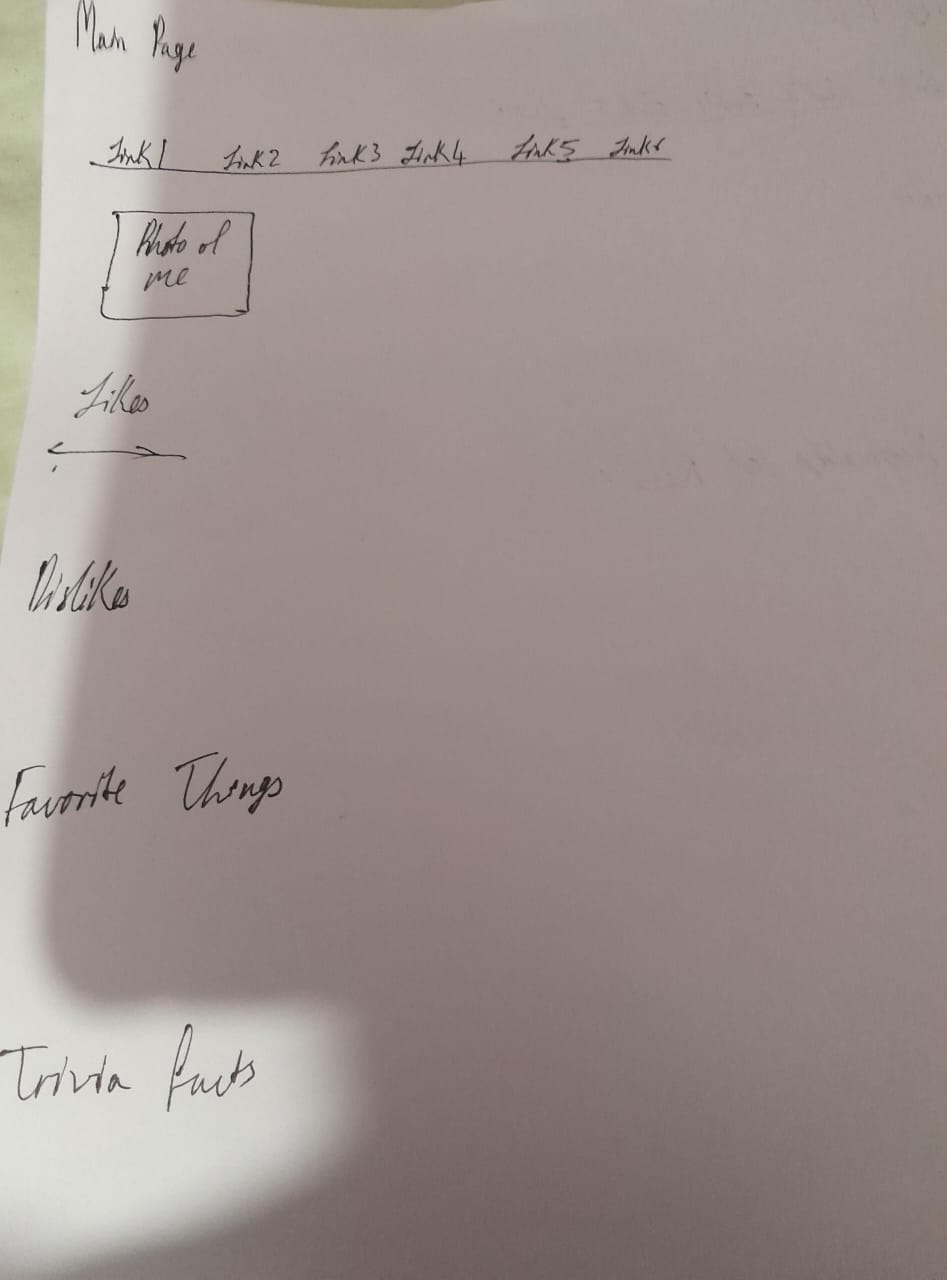 Main Page
Link1 Link2 Link3 Link4 Link5 Link6
Photo of
me
Likes
Dislikes
Favorite Things
Trivia facts